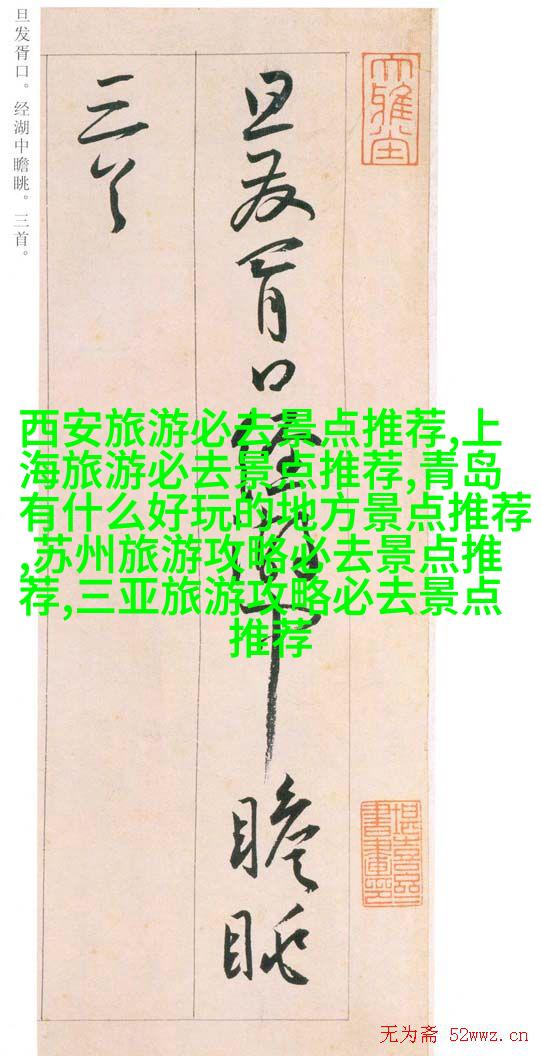 旦发胥口。经湖中瞻眺。三首。
旦發胥口經湖中
瞻眺
三首
大雅堂
西安旅游必去景点推荐,上
海旅游必去景点推荐,青岛
有什么好玩的地方景点推荐
,苏州旅游攻略必去景点推
荐,三亚旅游攻略必去景点
推荐
无为斋 52wwz.cn